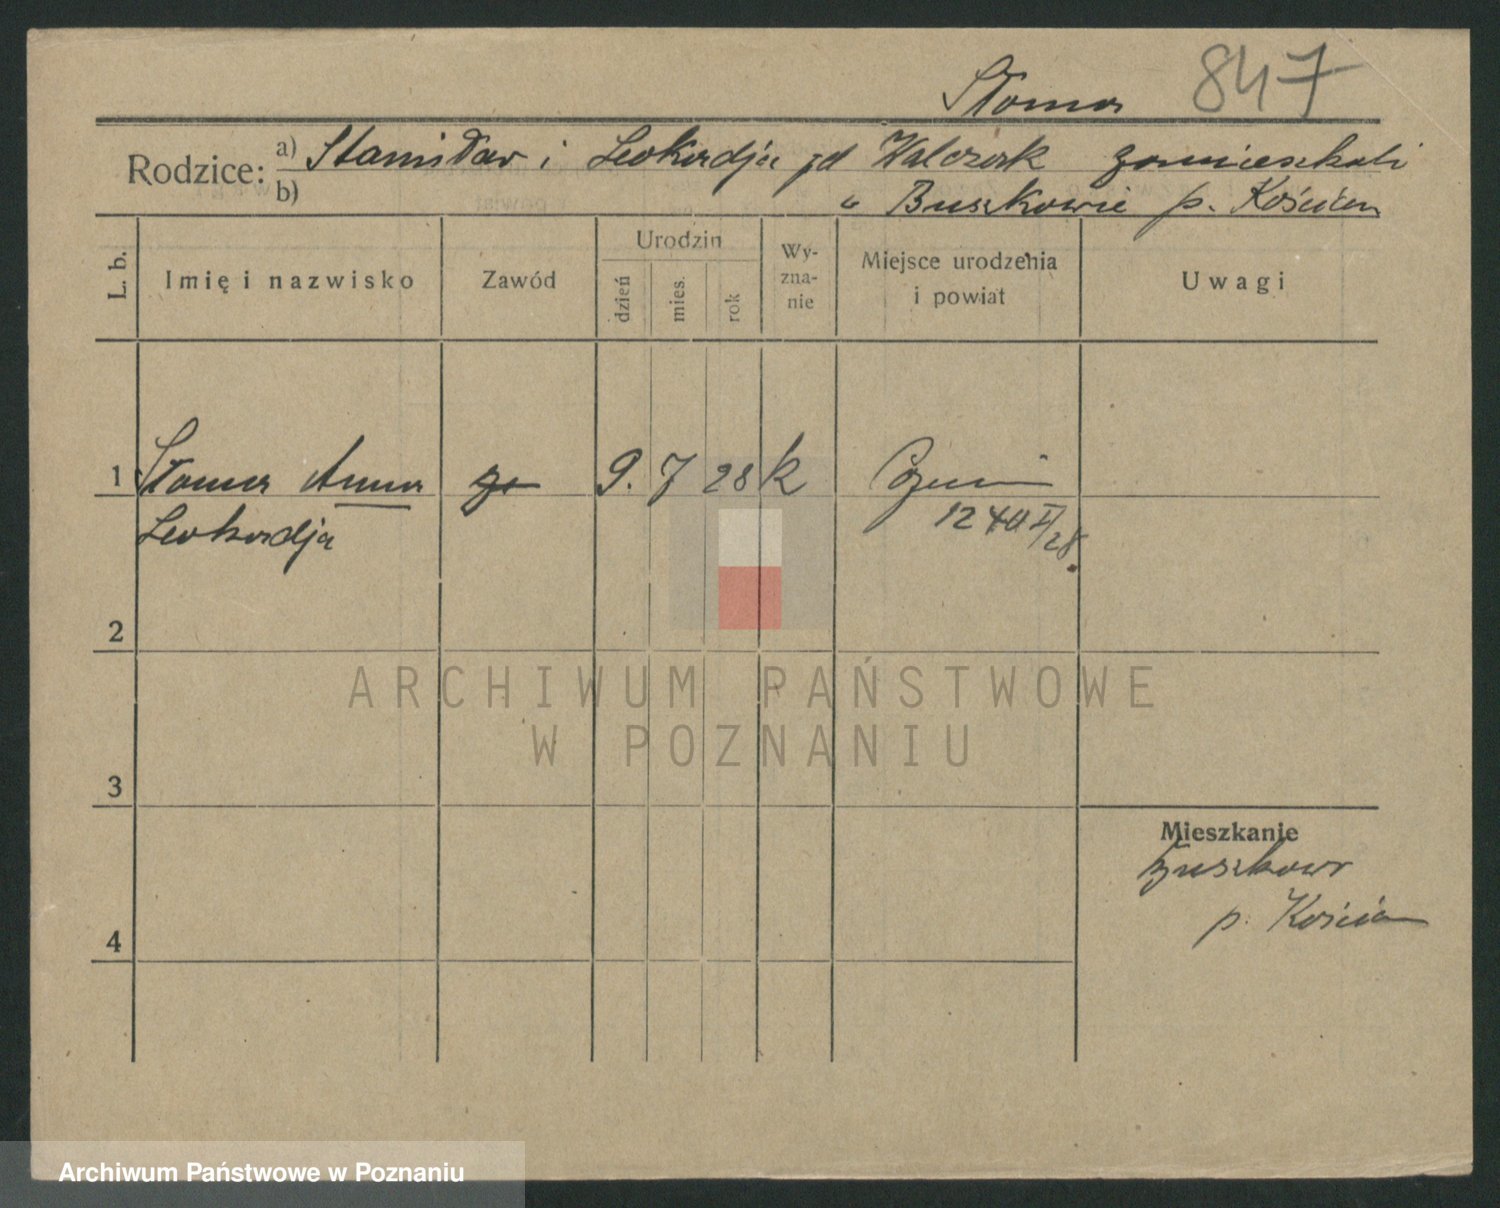 Słoma 847
Rodzice: a) Stanisław i Leokadja zd Walczak zamieszkali
b) w Buszkowie p. Kościan
L. b. Imię i nazwisko Zawód Urodzin dzień mies. rok Wy-zna-nie Miejsce urodzenia i powiat Uwagi
1 Słoma Anna 9. 7 28 k
Leokadja
2
3
4
Mieszkanie
Buszkowo
p. Kościan
ARCHIWUM PAŃSTWOWE
W POZNANIU
Archiwum Państwowe w Poznaniu